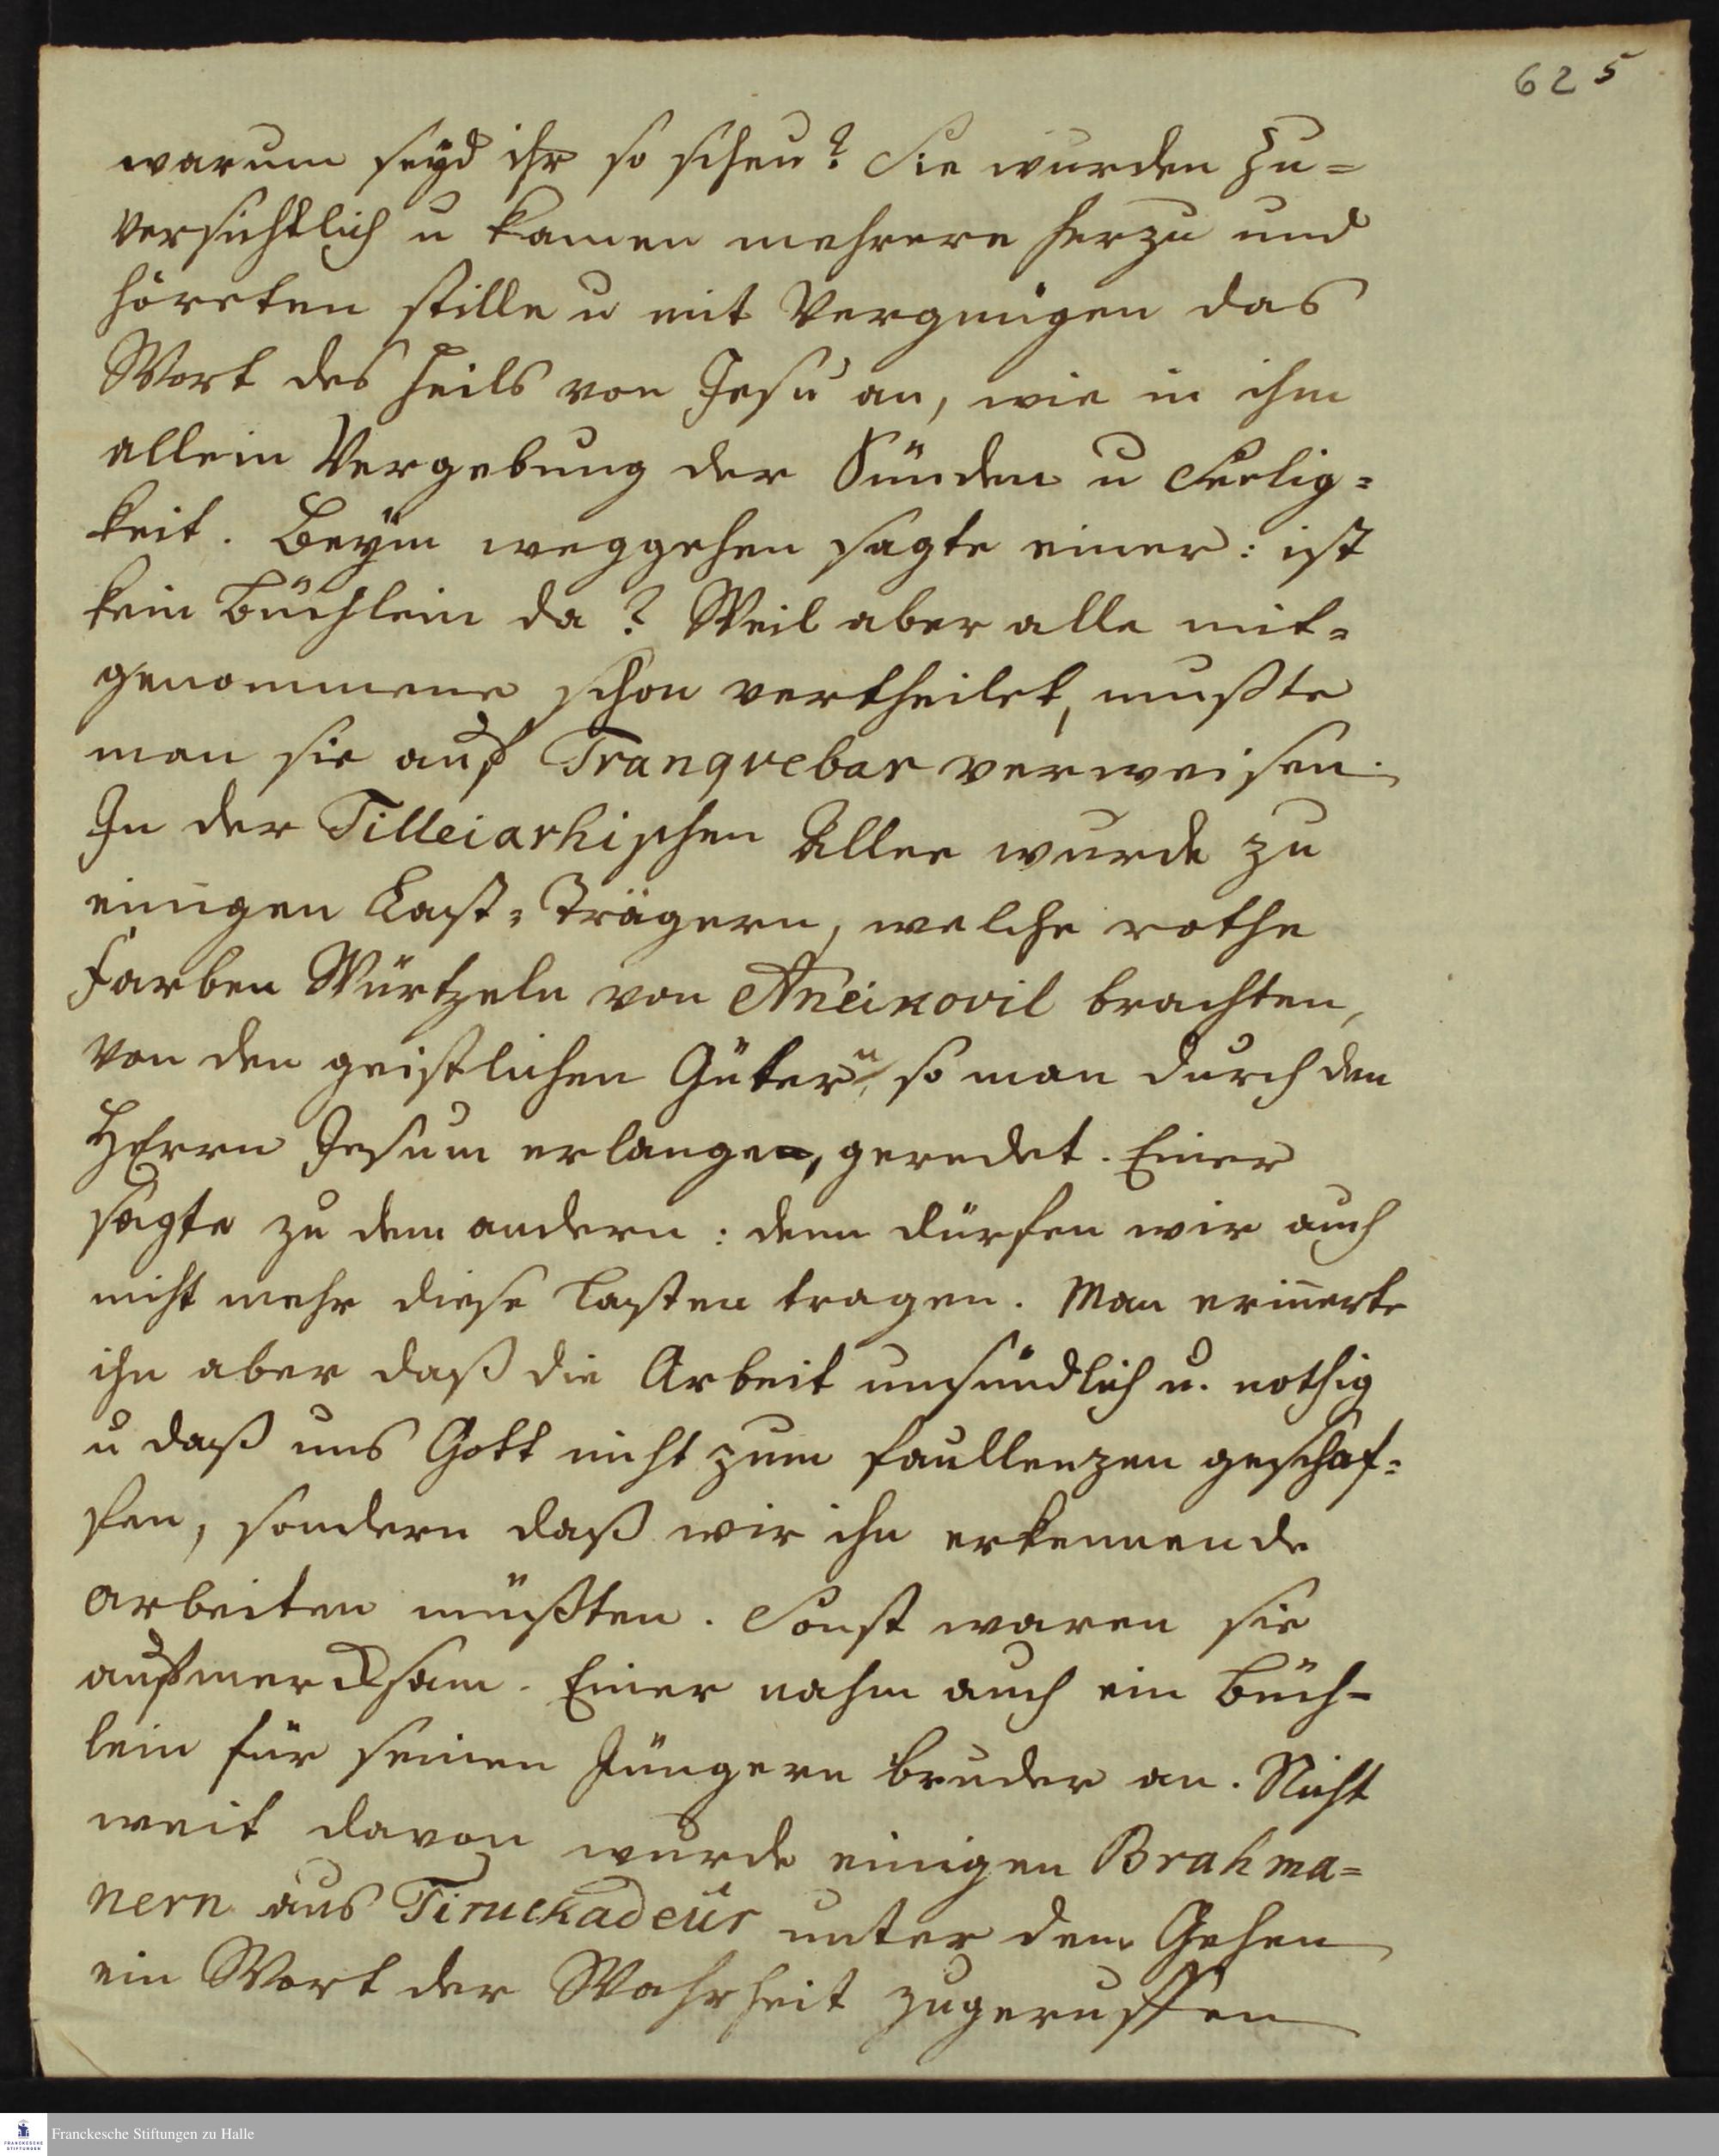 625
warum seyd ihr so scheu? Sie wurden zu=
versichtlich u kamen mehrere herzu und
höreten stille u mit Vergnügen das
Wort des Heils von Jesu an, wie in ihm
allein Vergebung der Sünden u Seelig=
keit. Beym weggehen sagte einer: ist
kein Büchlein da? Weil aber alle mit=
genommene schon vertheilet, mußte
man sie auf Tranqvebar verweisen.
In der Tilleiarhischen Allee wurde zu
einigen Last=Trägern, welche rothe
Farben Würtzeln von Aneikovil brachten,
von den geistlichen Gütern, so man durch den
HErrn Jesum erlange, geredet. Einer
sagte zu dem andern: denn dürfen wir auch
nicht mehr diese Lasten tragen. Man erin̄erte
ihn aber daß die Arbeit unsündlich u. nothig
u daß uns Gott nicht zum faullenzen geschaf=
fen, sondern daß wir ihn erkennende
arbeiten müßten. Sonst waren sie
aufmercksam. Einer nahm auch ein Büch=
lein für seinen Jüngern Bruder an. Nicht
weit davon wurde einigen Brahma=
nern aus Tiruckadeúr unter dem Gehen
ein Wort der Wahrheit zugeruffen
FRANCKESCHE STIFTUNGEN
Franckesche Stiftungen zu Halle